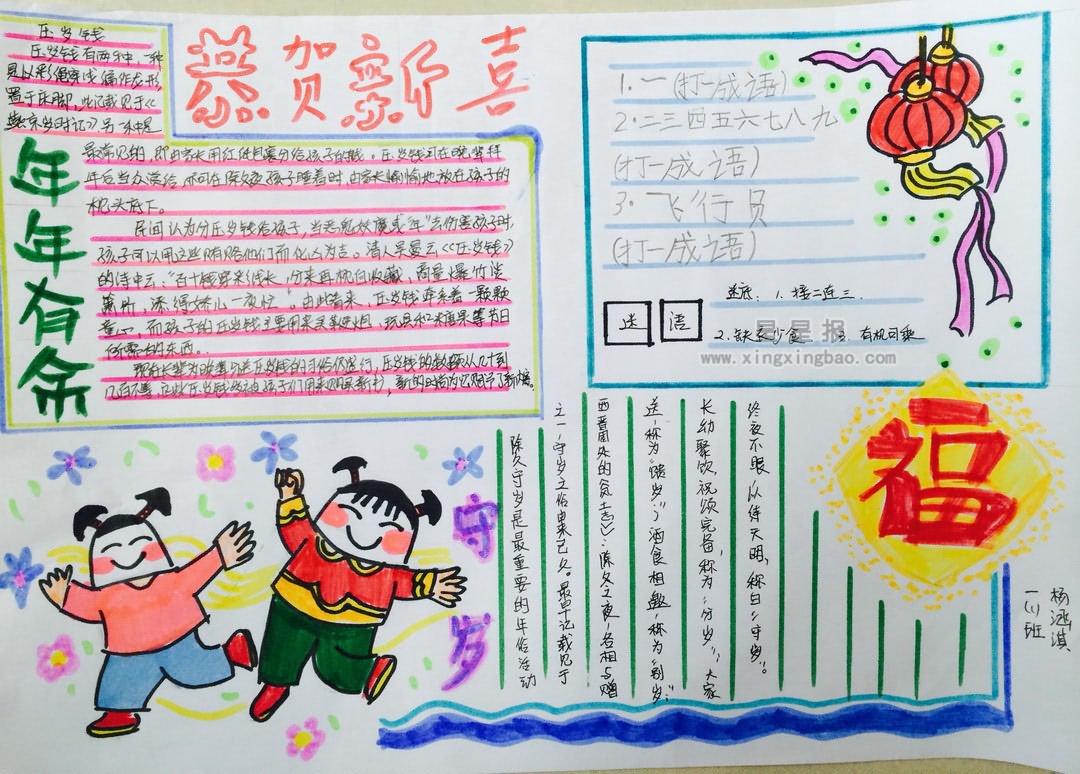 恭贺新喜
压岁钱
压岁钱有两种,一种
是以彩绳穿线编作龙形,
置于床脚,此记载见于《
燕京岁时记》;另一种是
最常见的,即由家长用红纸包裹分给孩子的钱。压岁钱可在晚辈拜
年后当众赏给,亦可在除夕夜孩子睡着时,由家长偷偷地放在孩子的
枕头底下。
民间认为分压岁钱给孩子,当恶鬼妖魔或“年”去伤害孩子时,
孩子可以用这些钱贿赂他们而化凶为吉。清人吴曼云《压岁钱》
的诗中云:“百十钱穿彩线长,分来再枕自收藏,商量爆竹谈
箫价,添得娇儿一夜忙”。由此看来,压岁钱牵系着一颗颗
童心,而孩子的压岁钱主要用来买鞭炮、玩具和糖果等节日
所需的东西。
年年有余
1.一(打一成语)
2.二三四五六七八九
(打一成语)
3.飞行员
(打一成语)
谜语
谜底:1.接二连三
2.缺衣少食 3.有机可乘
星星报
www.xingxingbao.com
福
守岁
除夕守岁是最重要的年俗活动
之一,守岁之俗由来已久。最早记载见于
西晋周处的《风土志》:除夕之夜,各相与赠
送,称为“馈岁”;酒食相邀,称为“别岁”;
长幼聚饮,祝颂完备,称为“分岁”;大家
终夜不眠,以待天明,称曰“守岁”。
杨鸿淇
一(1)班